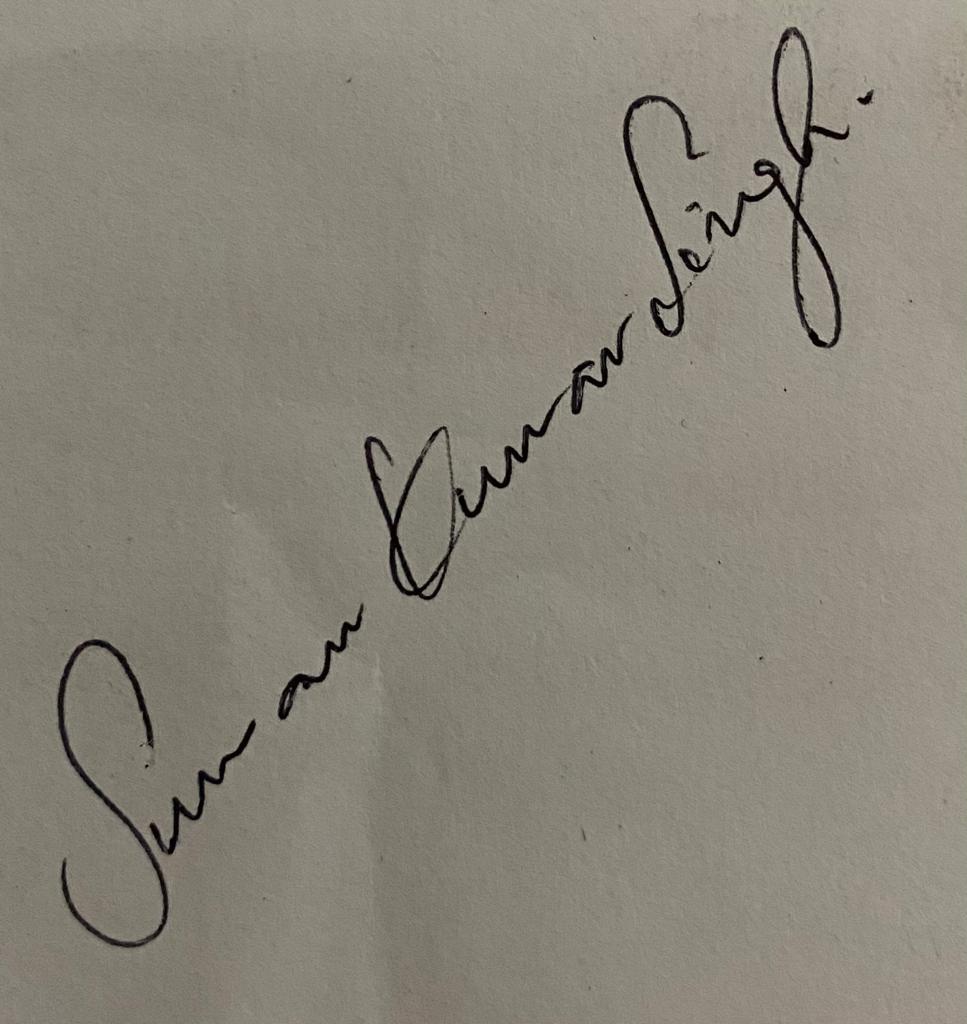 Suman Kumar Singh.